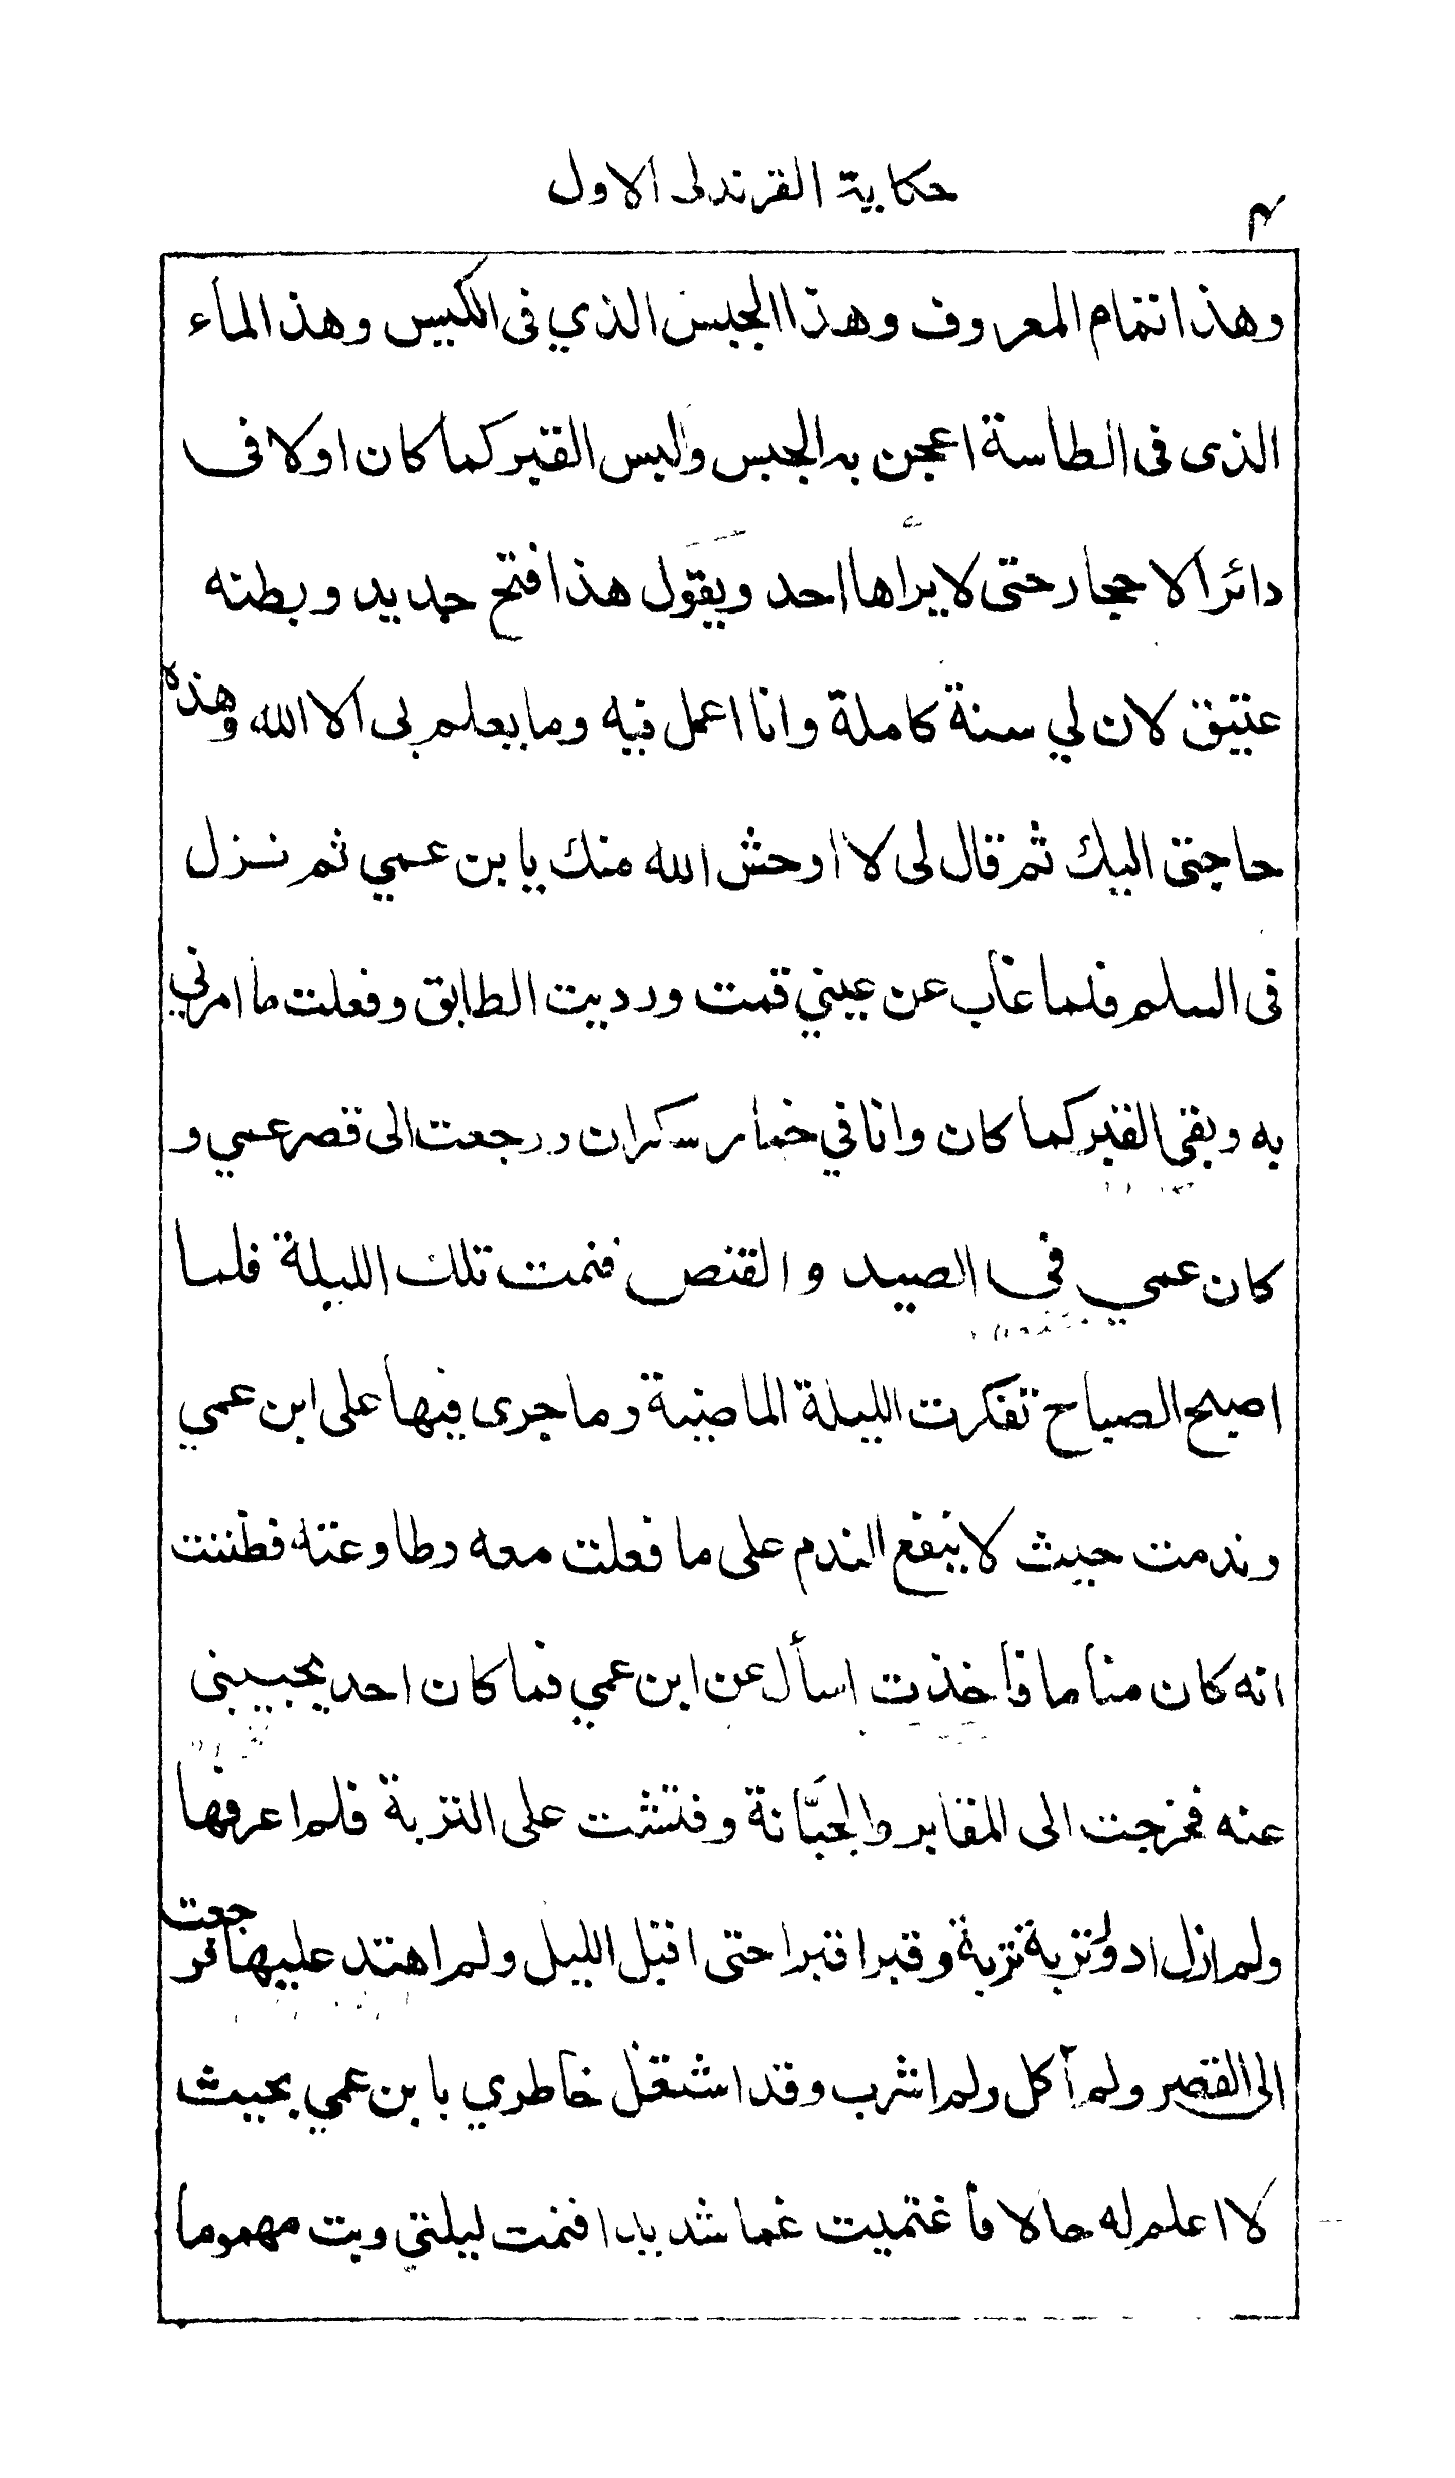 حكاية القرندلى الاول
٣
وهذا تمام المعروف وهذا الجبس الذي فى الكيس وهذ الماء
الذى فى الطاسة اعجن به الجبس واليس القبر كما كان اولا فى
دائر الاحجار حتى لا يراها احد ويقول هذا فتح جديد وبطنه
عتيق لان لي سنة كاملة وانا اعمل فيه وما يعلم بى الا الله وهذه
حاجتى اليك ثم قال لى لا اوحش الله منك يا بن عمي ثم نزل
فى السلم فلما غاب عن عيني قمت ورديت الطابق وفعلت ما امرني
به وبقى القبر كما كان وانا في خمار سكران ورجعت الى قصر عمي و
كان عمي في الصيد والقنص فنمت تلك الليلة فلما
اصبح الصباح تفكرت الليلة الماضية وما جرى فيها على ابن عمي
وندمت حيث لا ينفع الندم على ما فعلت معه وطاوعته فظننت
انه كان مناما فأخذت اسأل عن ابن عمي فما كان احد يجيبنى
عنه فخرجت الى المقابر والجبّانة وفتشت على التربة فلم اعرفها
ولم ازل ادور تربة تربة وقبرا قبرا حتى اقبل الليل ولم اهتد عليها فرجعت
الى القصر ولم آكل ولم اشرب وقد اشتغل خاطري با بن عمي بحيث
لا اعلم له حالا فأغتميت غما شديدا فنمت ليلتي وبت مهموما